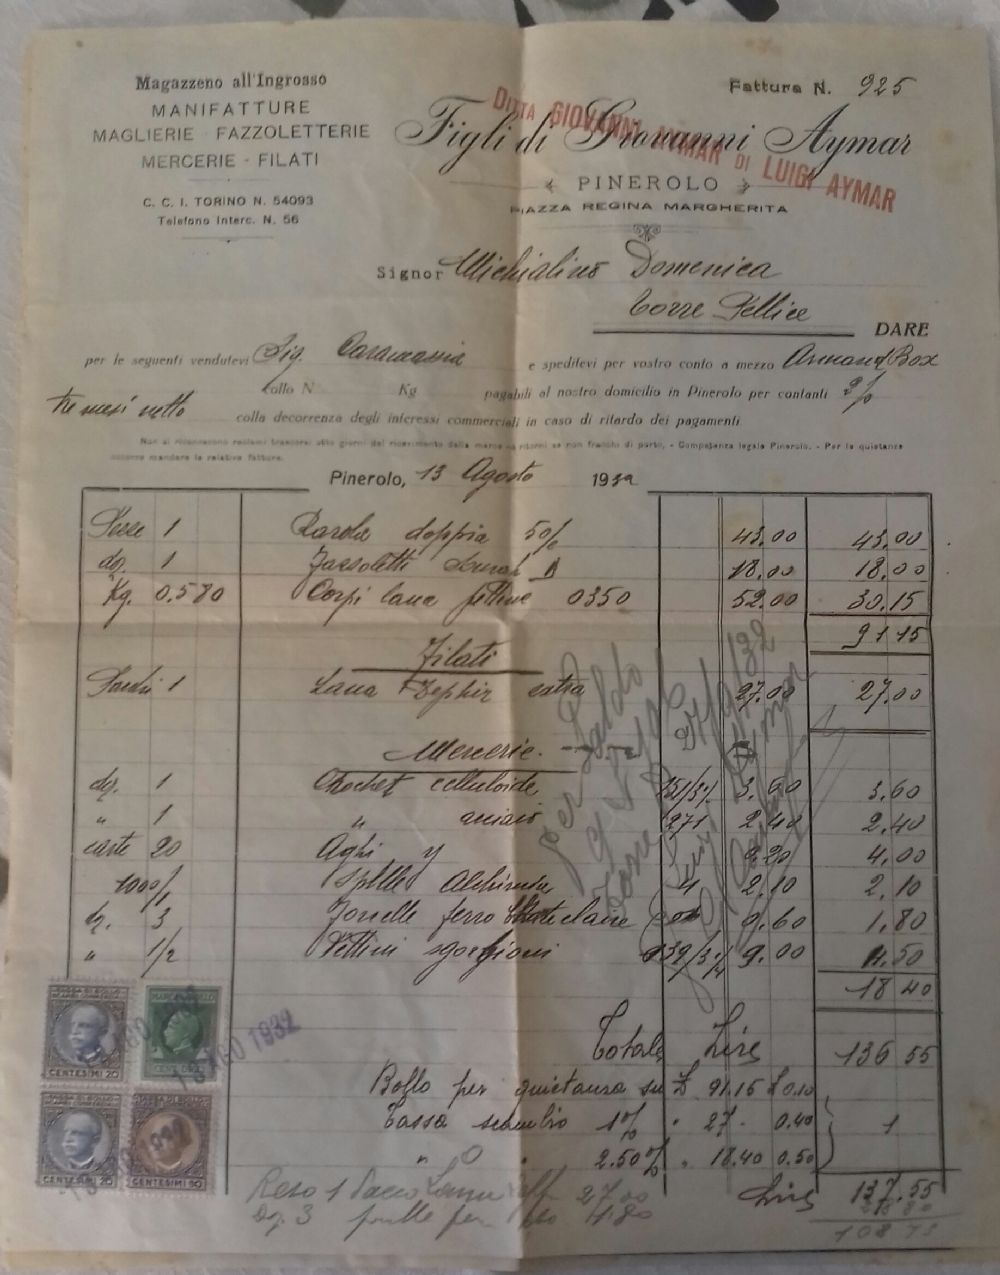 Magazzeno all'Ingrosso
MANIFATTURE
MAGLIERIE - FAZZOLETTERIE
MERCERIE - FILATI
C. C. I. TORINO N. 54093
Telefono Interc. N. 56
Fattura N. 925
Figli di Giovanni Aymar
DITTA GIOVANNI AYMAR DI LUIGI AYMAR
PINEROLO
PIAZZA REGINA MARGHERITA
Signor Michialino Domenica
Torre Pellice
DARE
per le seguenti vendutevi Sig. e speditevi per vostro conto a mezzo Armand Box
collo N Kg pagabili al nostro domicilio in Pinerolo per contanti 2%
tre mesi netto colla decorrenza degli interessi commerciali in caso di ritardo dei pagamenti
Non si riconoscono reclami trascorsi otto giorni dal ricevimento della merce se non franchi di porto. - Competenza legale Pinerolo. - Per le quietanze
occorre mandare la relativa fattura.
Pinerolo, 13 Agosto 1932
1 doppia 50% 43.00 43.00
dz. 1 Fazzoletti 18.00 18.00
Kg. 0.580 Corpi lana 0350 52.00 30.15
91.15
Filati
1 Lana Zephir extra 27.00 27.00
Mercerie
dz. 1 Crochet celluloide 3.60 3.60
" 1 " acciaio 271 2.40 2.40
carte 20 Aghi 0.20 4.00
1000/1 Spille 2.10 2.10
dz. 3 ferro 0.60 1.80
" 1/2 Pettini 9.00 4.50
18.40
Totale Lire 136.55
Bollo per quietanza su £ 91.15 £ 0.10
Tassa scambio 1% " 27.- 0.40 1
" 2.50% " 18.40 0.50
Lire 137.55
Reso 1 Pacco Lana 27.00
Dz. 3 per 1.80
per Saldo
CENTESIMI 20
CENTESIMI 20
CENTESIMI 50
13 AGO 1932